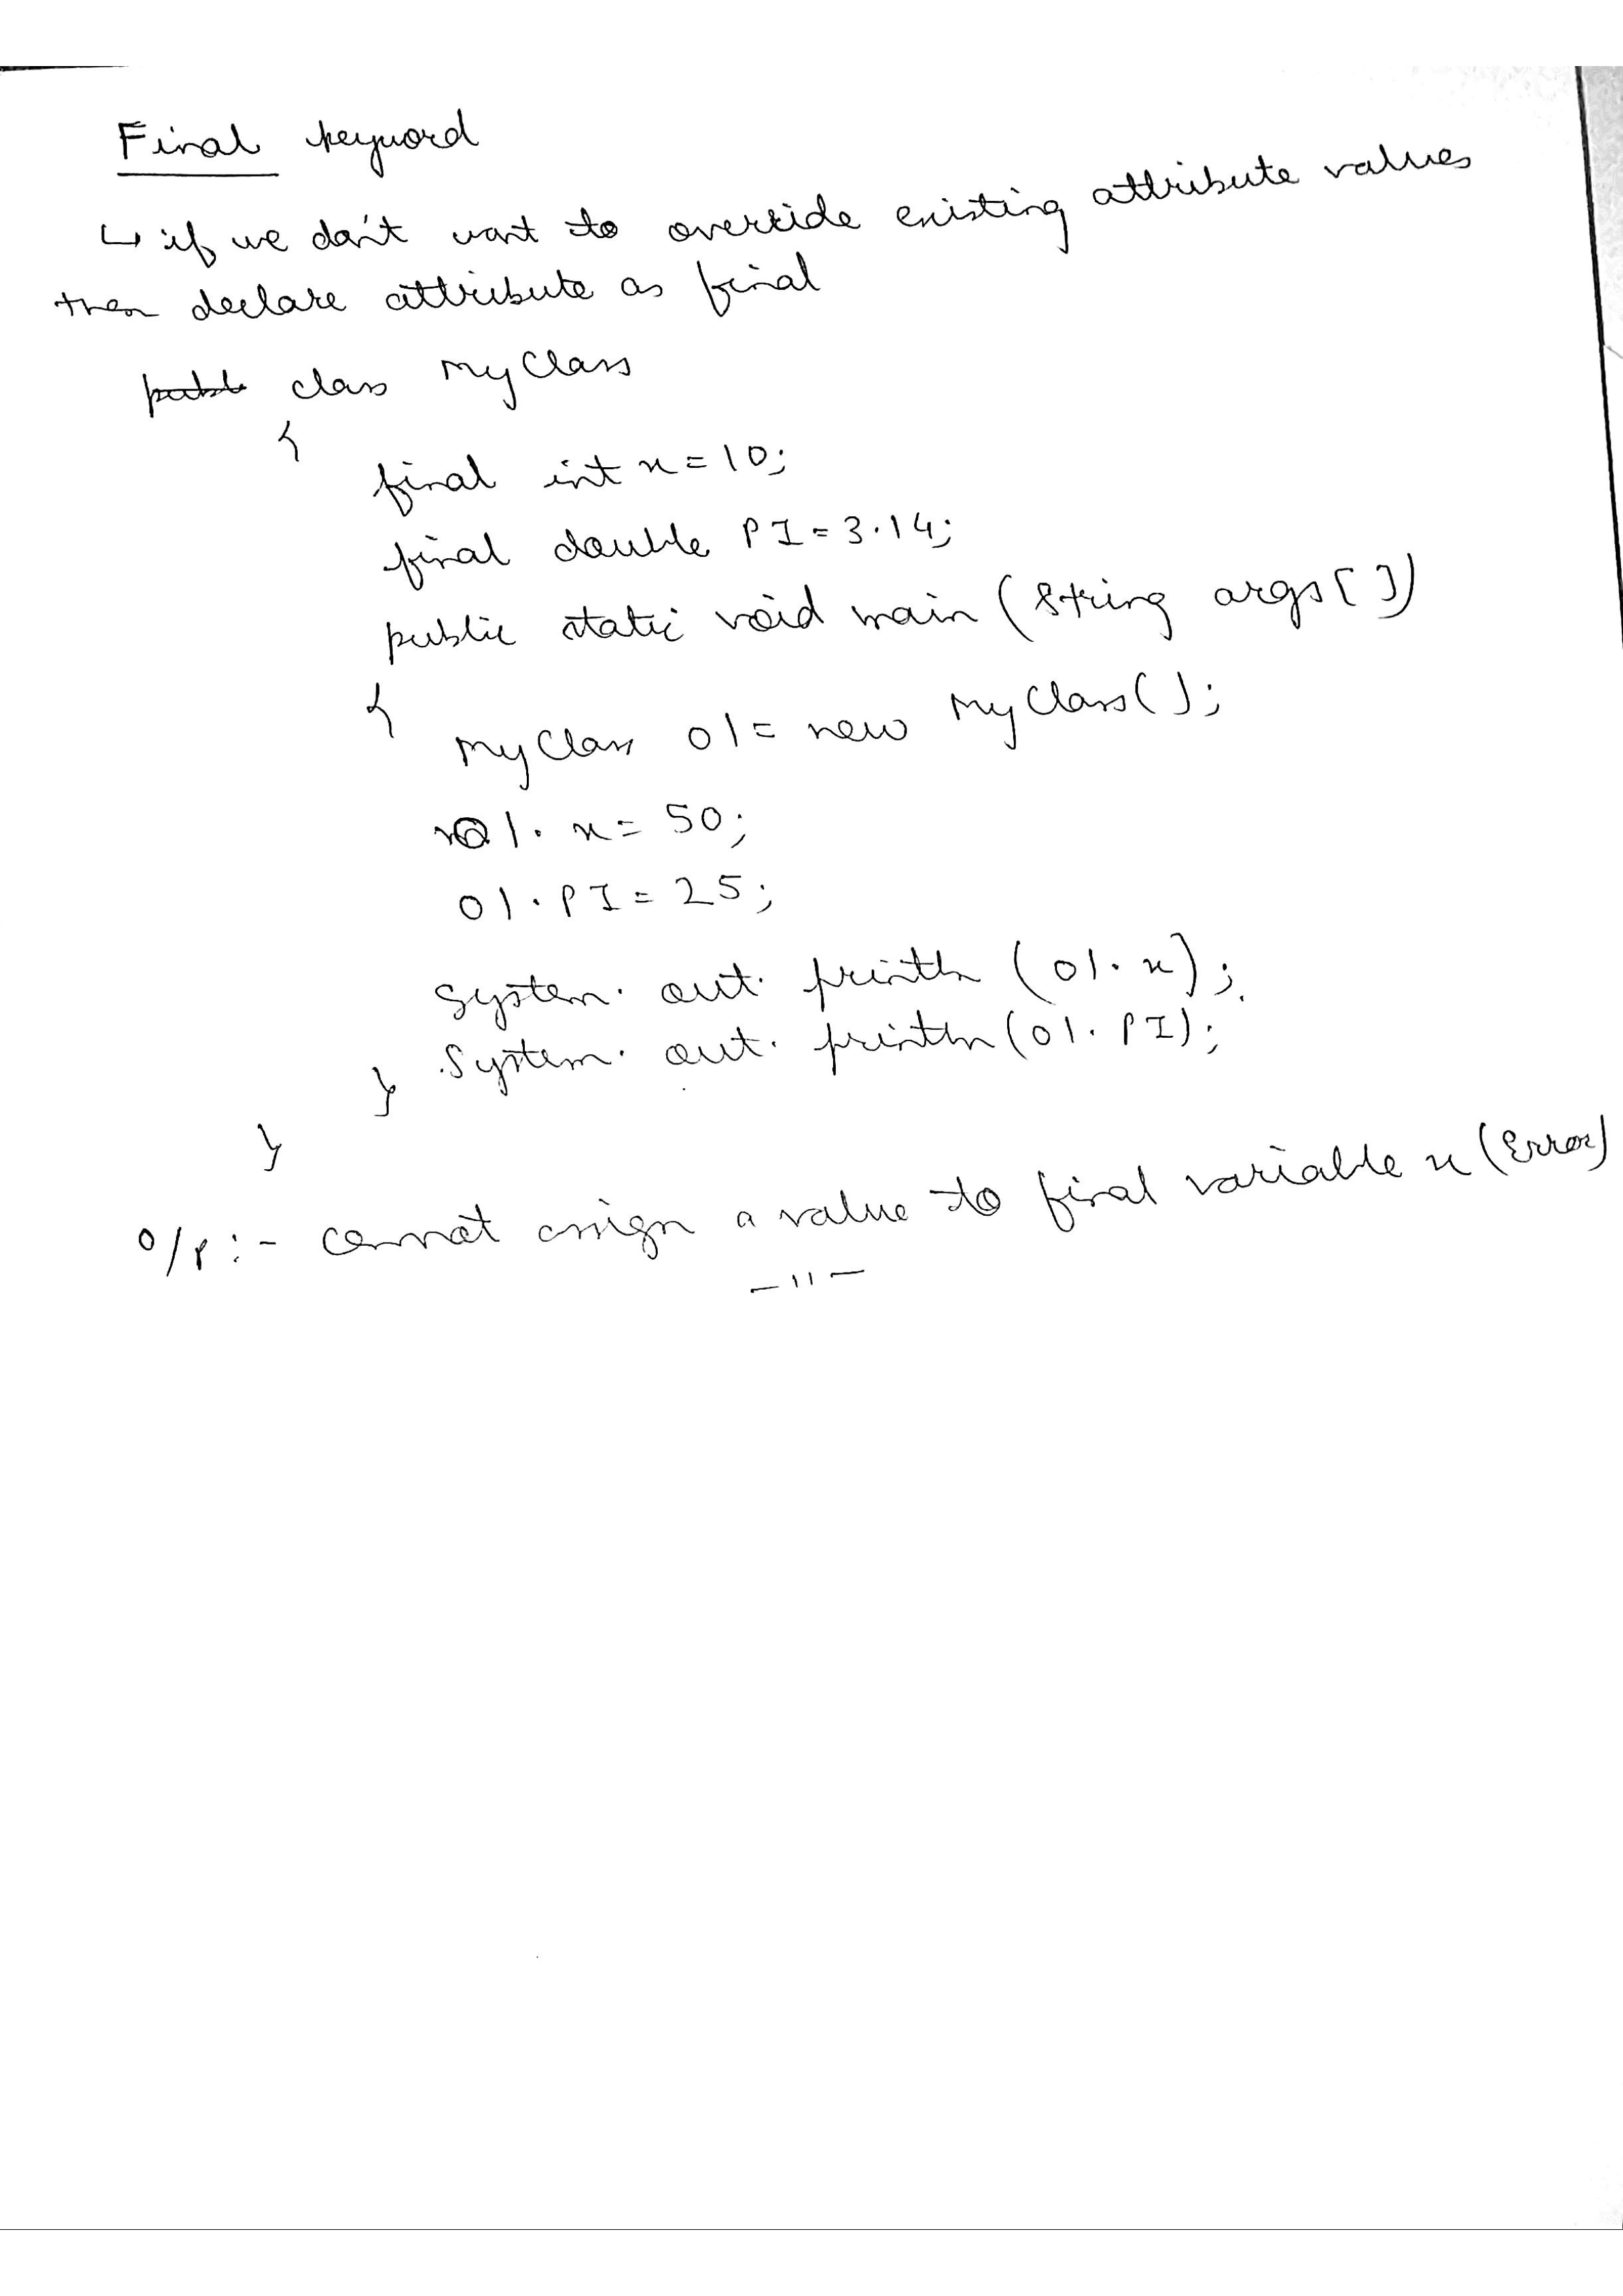 Final keyword
↳ if we don't want to override existing attribute values
then declare attribute as final
class MyClass
{
final int x = 10;
final double PI = 3.14;
public static void main (String args[])
{
MyClass o1 = new MyClass();
o1. x = 50;
o1. PI = 25;
System. out. println (o1. x);
System. out. println (o1. PI);
}
}
O/P :- cannot assign a value to final variable x (Error)
— 11 —